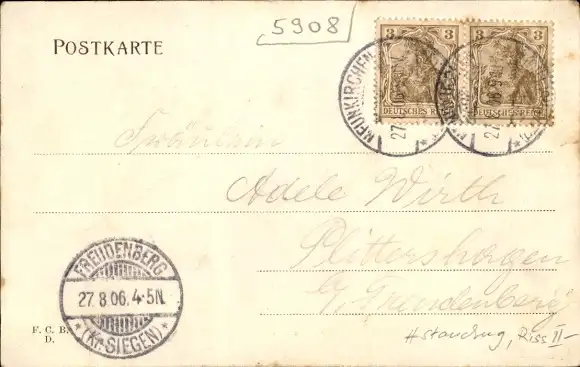 5908
POSTKARTE
3 3
DEUTSCHES REICH
3 3
DEUTSCHES REICH
NEUNKIRCHEN
27
27
06
Fräulein
Adele Wirth
Plittershagen
b/ Freudenberg
FREUDENBERG
27.8.06.4-5N.
* (Kr. SIEGEN) *
F. C. B.
D.
Riss II-